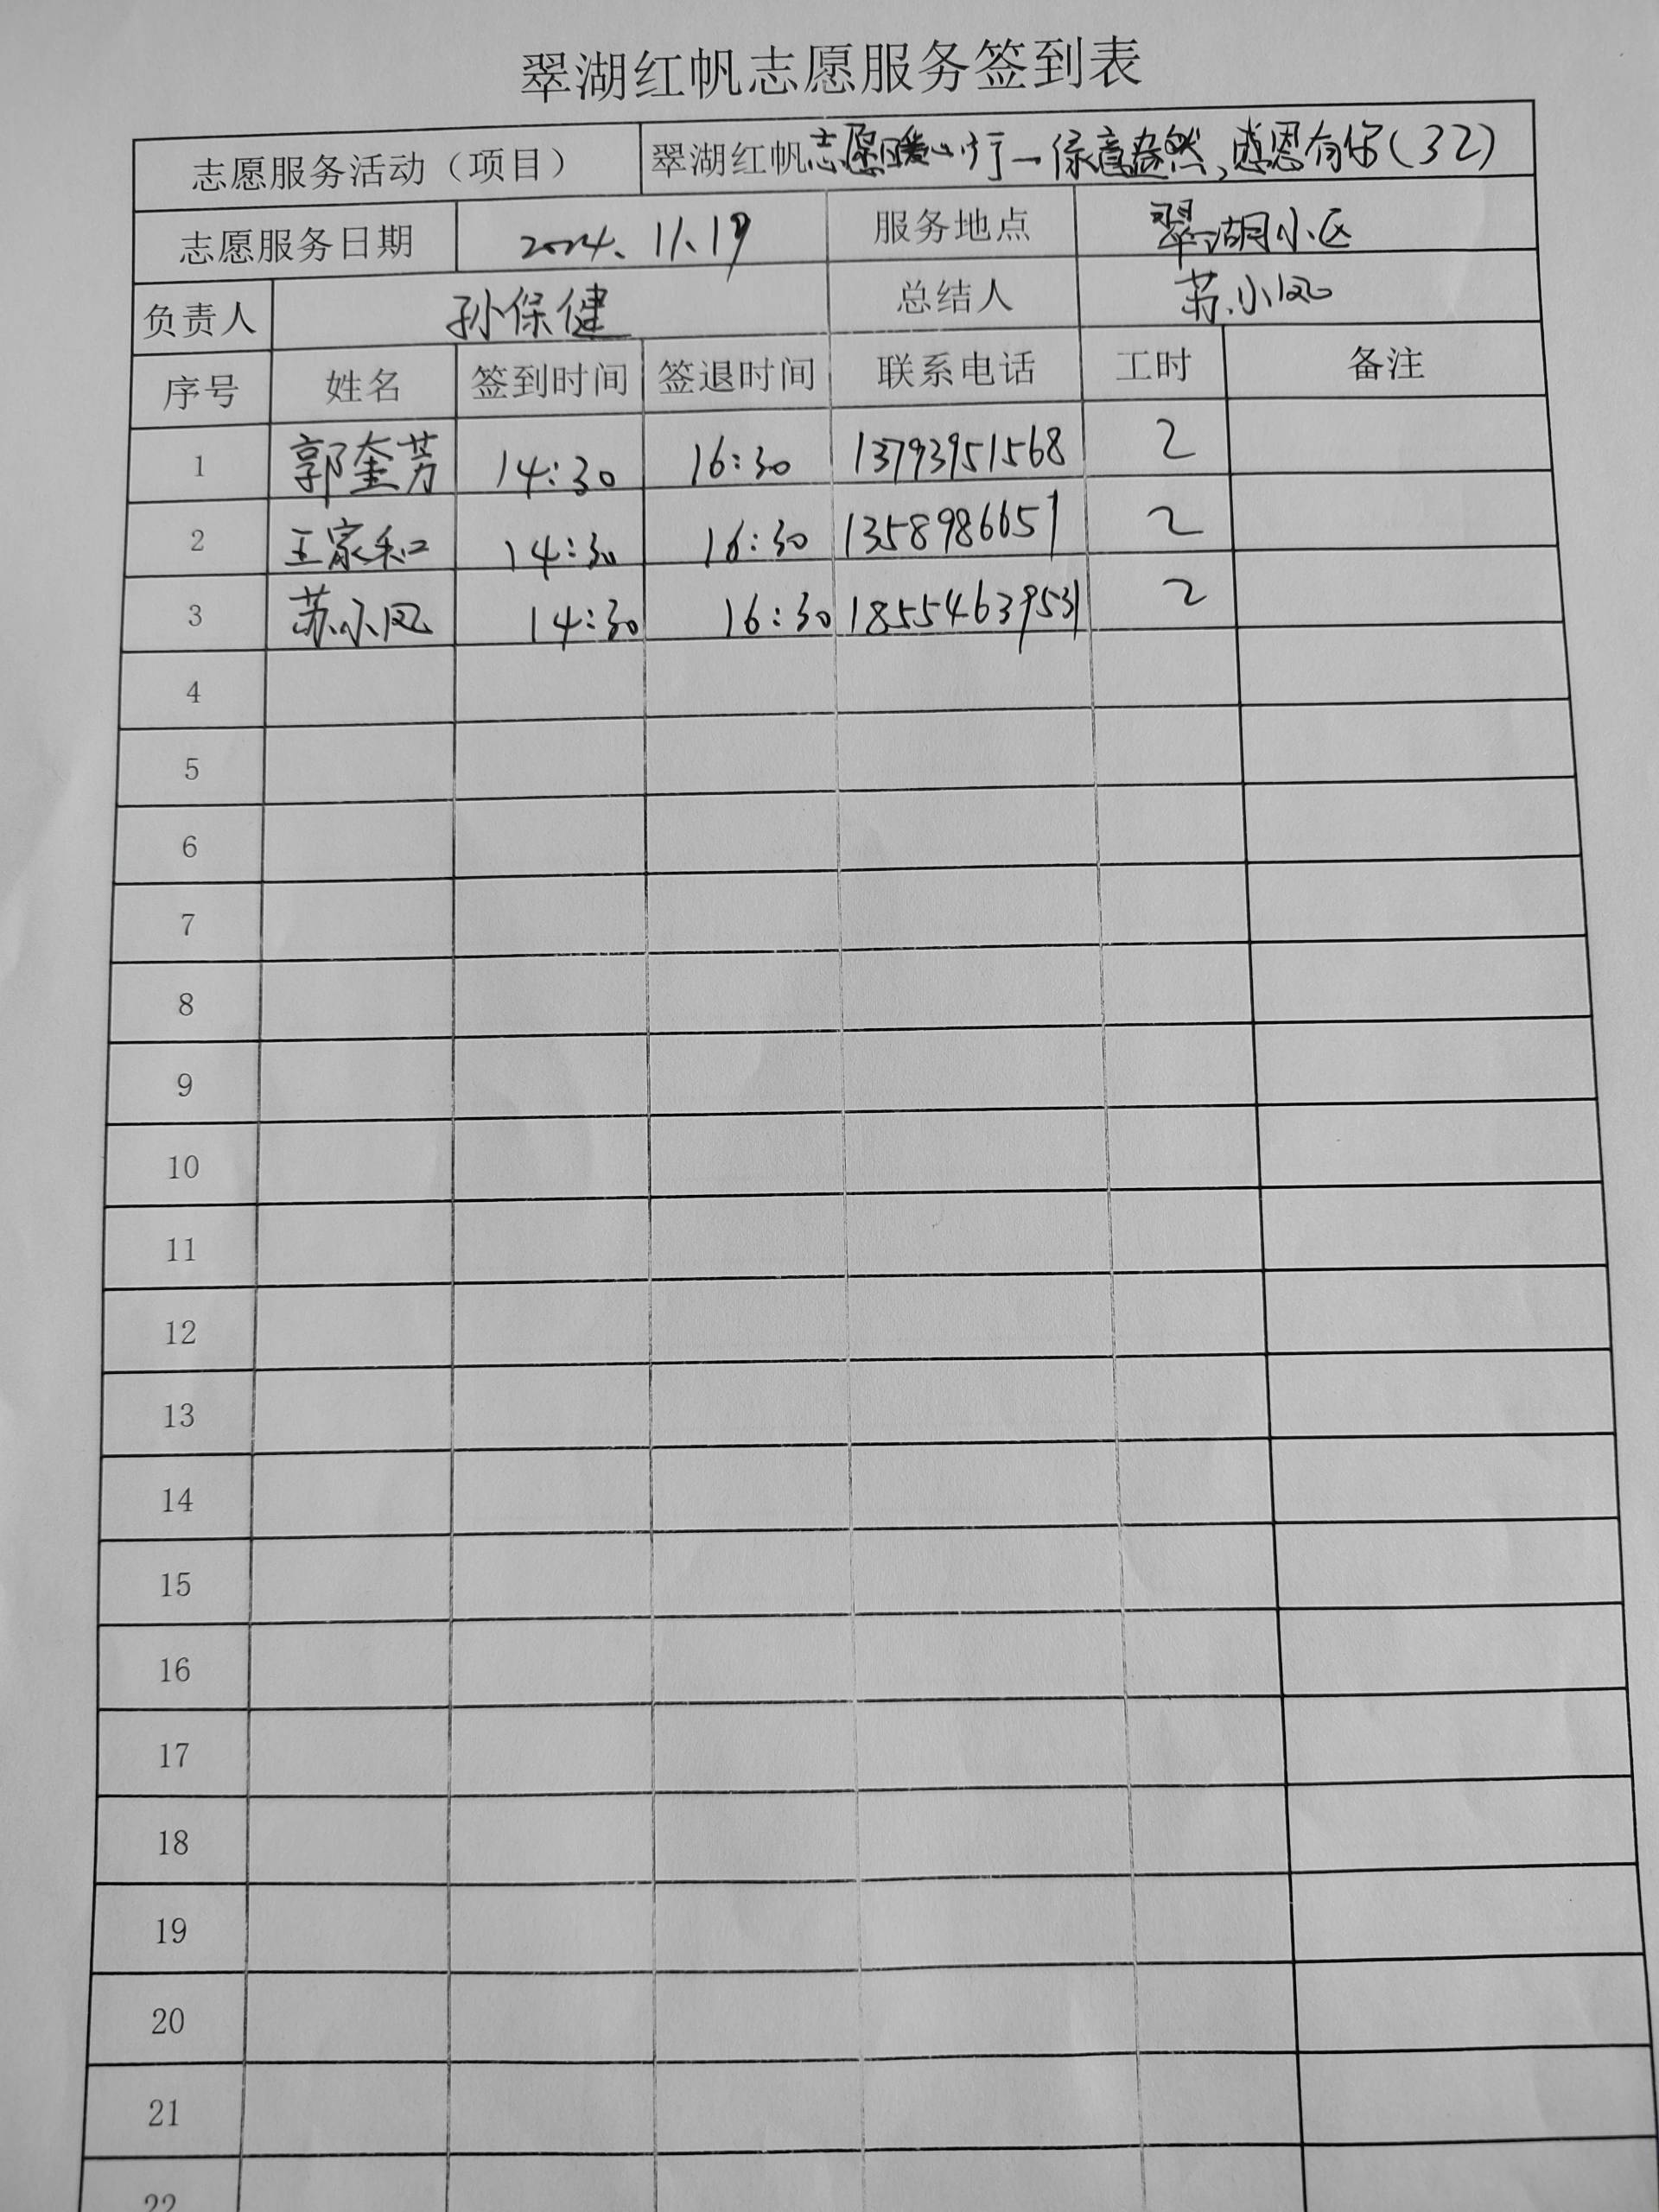 翠湖红帆志愿服务签到表
志愿服务活动（项目） 翠湖红帆志愿暖心行一绿意盎然,感恩有你(32)
志愿服务日期 2024.11.19 服务地点 翠湖小区
负责人 孙保健 总结人 苏小凤
序号 姓名 签到时间 签退时间 联系电话 工时 备注
1 郭奎芳 14:30 16:30 13793951568 2
2 王家和 14:30 16:30 1358986651 2
3 苏小凤 14:30 16:30 18554639531 2
4
5
6
7
8
9
10
11
12
13
14
15
16
17
18
19
20
21
22